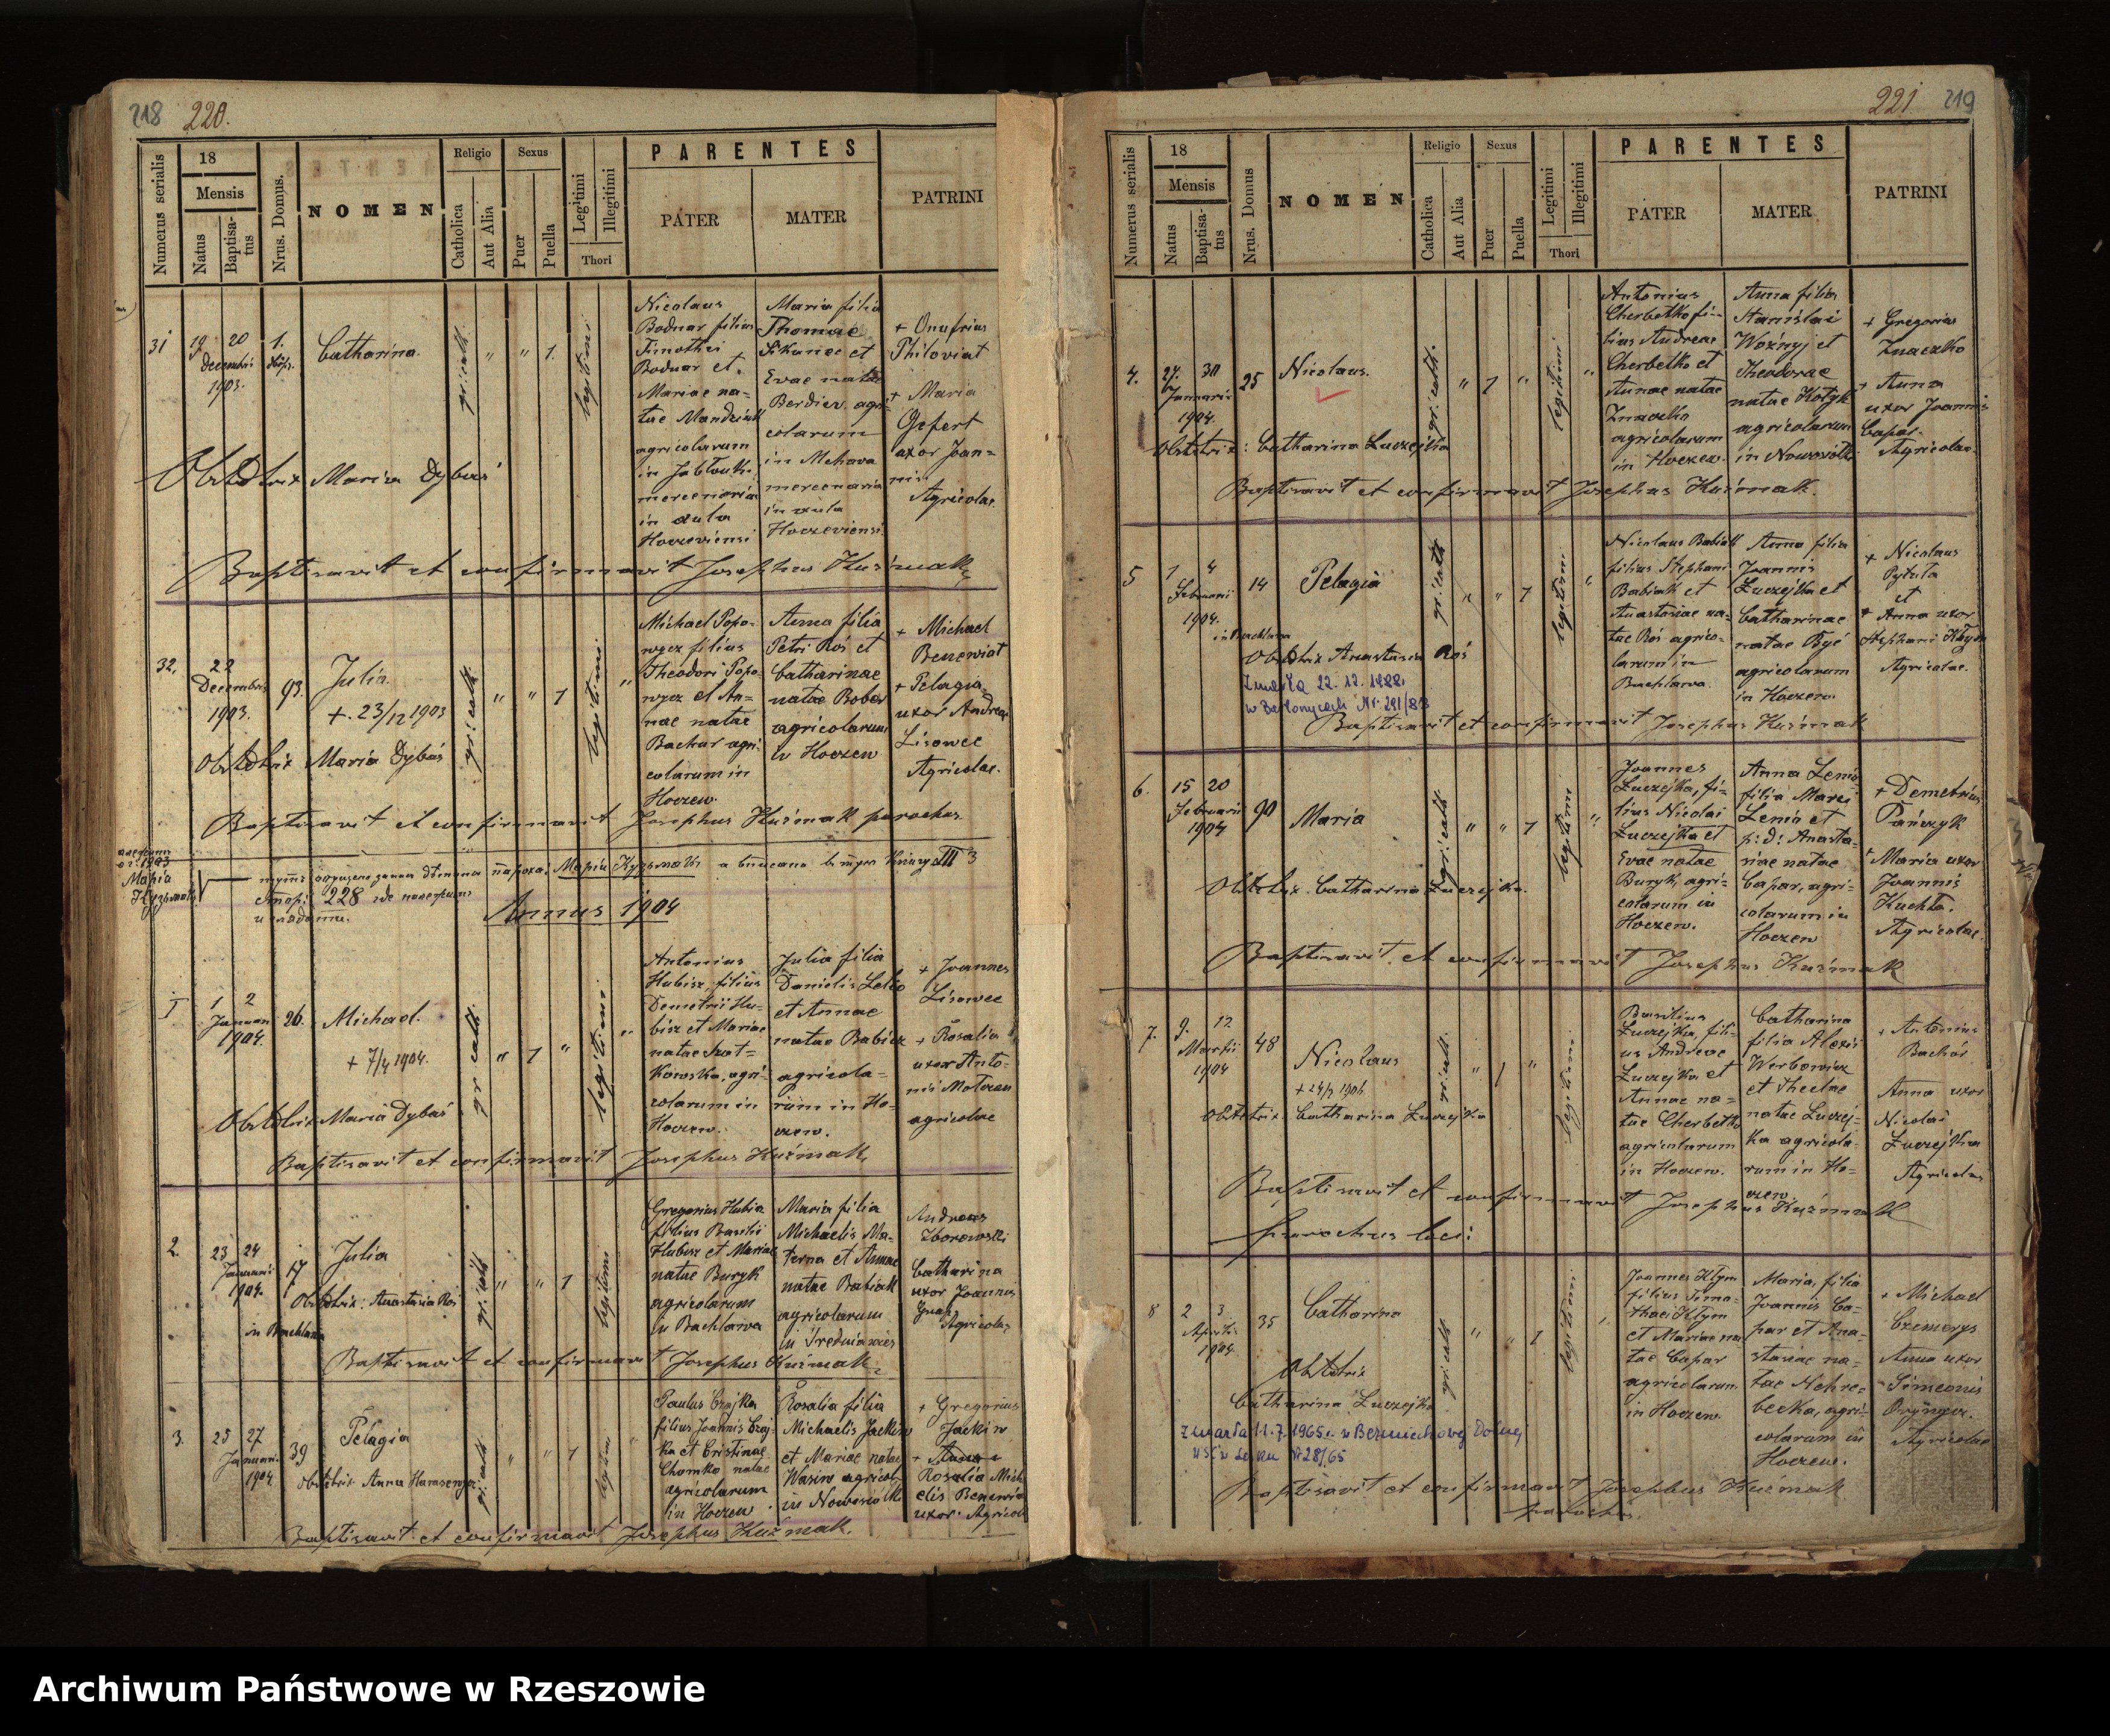 218 220.
Numerus serialis
18
Mensis
Natus
Baptisatus
Nrus. Domus.
NOMEN
Religio
Catholica
Aut Alia
Sexus
Puer
Puella
Legitimi
Illegitimi
Thori
PARENTES
PATER
MATER
PATRINI
31
19 20
Decembris
1903.
1.
Catharina.
gr. cath.
" " 1.
legitimi
Nicolaus
Bodnar filius
Timothei
Bodnar et
Mariae na-
tae
agricolarum
in
mercenaria
in aula
Hoczeviensi
Maria filia
Thomae
et
Evae natae
agri-
colarum
in Mchava
mercenaria
in aula
Hoczeviensi
+ Onufrius
Philoviat
+ Maria
Gefert
uxor Joan-
nis
Agricolae.
Obstetrix Maria Dybaś
Baptisavit et confirmavit Josephus Kuźmak
32.
22
Decembris
1903.
93.
Julia
+. 23/12 1903
gr. cath.
" " 1
legitimi "
Michael Popo-
wycz filius
Theodori Popo-
wycz et An-
nae natae
Bachur agri-
colarum in
Hoczew.
Anna filia
Petri Roś et
Catharinae
natae Bober
agricolarum
in Hoczew
+ Michael
Benewiat
+ Pelagia
uxor Andreae
Lisowec
Agricolae.
Obstetrix Maria Dybaś
Baptisavit et confirmavit Josephus Kuźmak parochus.
1903
Марія
228
Annus 1904
1
1 2
Januari
1904.
26.
Michael.
+ 7/4 1904.
gr. cath.
" 1 "
legitimi "
Antonius
Hubisz, filius
Demetrii Hu-
bisz et Mariae
natae Kwat-
kowska, agri-
colarum in
Hoczew.
Julia filia
Danielis Lelio
et Annae
natae Babicz
agricola-
rum in Ho-
czew.
+ Joannes
Lisowec
+ Rosalia
uxor Anto-
nii Molczan
agricolae
Obstetrix Maria Dybaś
Baptisavit et confirmavit Josephus Kuźmak
2.
23 24
Januari
1904.
17
Julia
gr. cath
" " 1
legitimi
Gregorius Hubisz
filius Basilii
Hubisz et Mariae
natae Buryk
agricolarum
in Bachlawa
Maria filia
Michaelis Ma-
terna et Annae
natae Babiak
agricolarum
in Średniawies
Andreas
Zborowski
Catharina
uxor Joannis
Agricolae
Obstetrix: Anastasia Roś
in Bachlawa
Baptisavit et confirmavit Josephus Kuźmak
3.
25 27
Januari
1904
39
Pelagia
gr. cath
" " 1
legitimi "
Paulus Czajka
filius Joannis Czaj-
ka et Cristinae
Chomko natae
agricolarum
in Hoczew
Rosalia filia
Michaelis Jackiw
et Mariae natae
Wasiw agricol.
in Nowosiółki
+ Gregorius
Jackiw
+ Anna
Rosalia Mich
elis Benewia
uxor. Agricol
obstetrix Anna
Baptisavit et confirmavit Josephus Kuźmak.
221 219
Numerus serialis
18
Mensis
Natus
Baptisatus
Nrus. Domus
NOMEN
Religio
Catholica
Aut Alia
Sexus
Puer
Puella
Legitimi
Illegitimi
Thori
PARENTES
PATER
MATER
PATRINI
4.
27. 30
Januarii
1904.
25
Nicolaus.
gr. cath.
" 1 "
legitimi "
Antonius
Cherbetko fi-
lius Andreae
Cherbetko et
Annae natae
Znaczko
agricolarum
in Hoczew.
Anna filia
Stanislai
Woźnyj et
Theodorae
natae Kotyk
agricolarum
in Nowosiółki
+ Gregorius
Znaczko
+ Anna
uxor Joannis
Capar.
Agricolae.
Obstetrix: Catharina Łuczejka
Baptisavit et confirmavit Josephus Kuźmak.
5
1 4
Februarii
1904.
14
Pelagia
gr. cath
" " 1
legitimi "
Nicolaus Babiak
filius Stephani
Babiak et
Anastasiae na-
tae Roś agrico-
larum in
Bachlawa.
Anna filia
Joannis
Łuczejka et
Catharinae
natae Być
agricolarum
in Hoczew.
+ Nicolaus
Pytuła
et
+ Anna uxor
Stephani Kłym
Agricolae.
in Bachlawa
Obstetrix Anastasia Roś
Zmarła 22. 12. 1982.
Nr. 291/83
Baptisavit et confirmavit Josephus Kuźmak
6.
15 20
Februarii
1904
90
Maria
gr. cath
" " 1
legitimi "
Joannes
Łuczejka, fi-
lius Nicolai
Łuczejka et
Evae natae
Buryk, agri-
colarum in
Hoczew.
Anna Zenio
filia Marci
Zenio et
p: d: Anasta-
siae natae
Capar, agri-
colarum in
Hoczew
+ Demetrius
Pańczyk
+ Maria uxor
Joannis
Kuchta.
Agricolae.
Obstetrix. Catharina Łuczejka.
Baptisavit et confirmavit Josephus Kuźmak
7.
9. 12
Martii
1904
48
Nicolaus
gr. cath.
" 1 "
legitimi
Basilius
Łuczejka, fili-
us Andreae
Łuczejka et
Annae na-
tae Cherbetko
agricolarum
in Hoczew.
Catharina
filia Alexii
Werbowicz
et Theclae
natae Łuczej-
ka agricola-
rum in Ho-
czew.
+ Antonius
Bachór
Anna uxor
Nicolai
Łuczejka
Agricolae
Obstetrix Catharina Łuczejka
Baptisavit et confirmavit Josephus Kuźmak
parochus loci:
8
2 3
Aprilis
1904.
35
Catharina
gr. cath
" " 1
legitimi
Joannes Kłym
filius Timo-
thaei Kłym
et Mariae na
tae Capar
agricolarum
in Hoczew.
Maria, filia
Joannis Ca-
par et Ana-
stasiae na-
tae Nehre-
becka, agri-
colarum in
Hoczew.
+ Michael
Czemerys
Anna uxor
Simeonis
Agricolae
Obstetrix
Catharina Łuczejka
Zmarła 11. 7. 1965 r. w Bezmiechowej Dolnej
Nr 28/65
Baptisavit et confirmavit Josephus Kuźmak
parochus.
Archiwum Państwowe w Rzeszowie